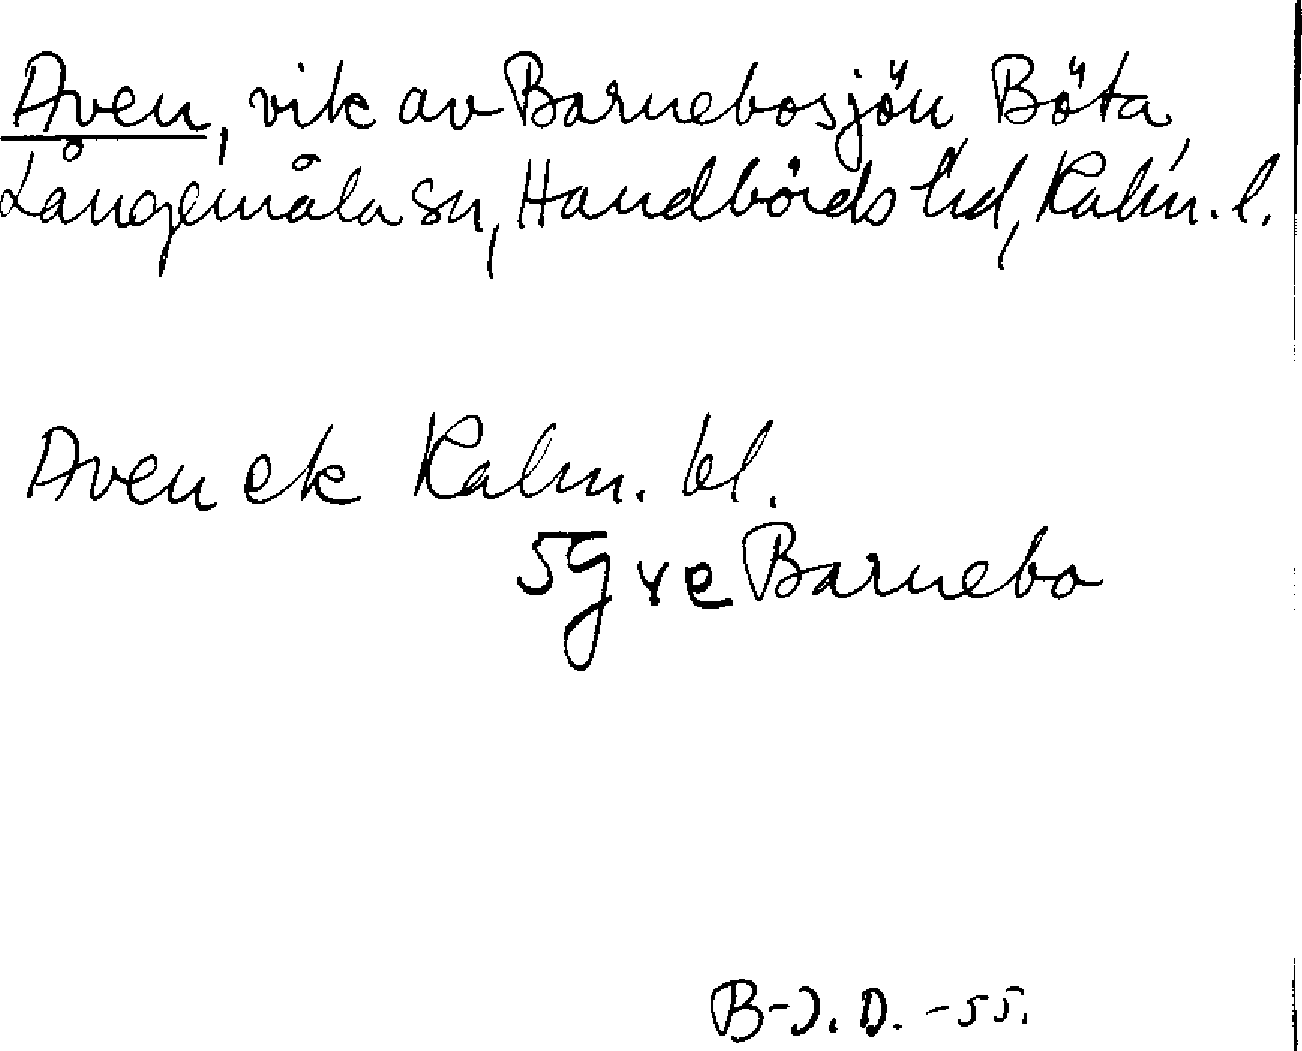 Aven, vik av Barnebosjön Böta
Långemåla sn, Handbörds hd, Kalm. l.
Aven ek Kalm. bl.
5g ve Barnebo
B-J. D. -55.